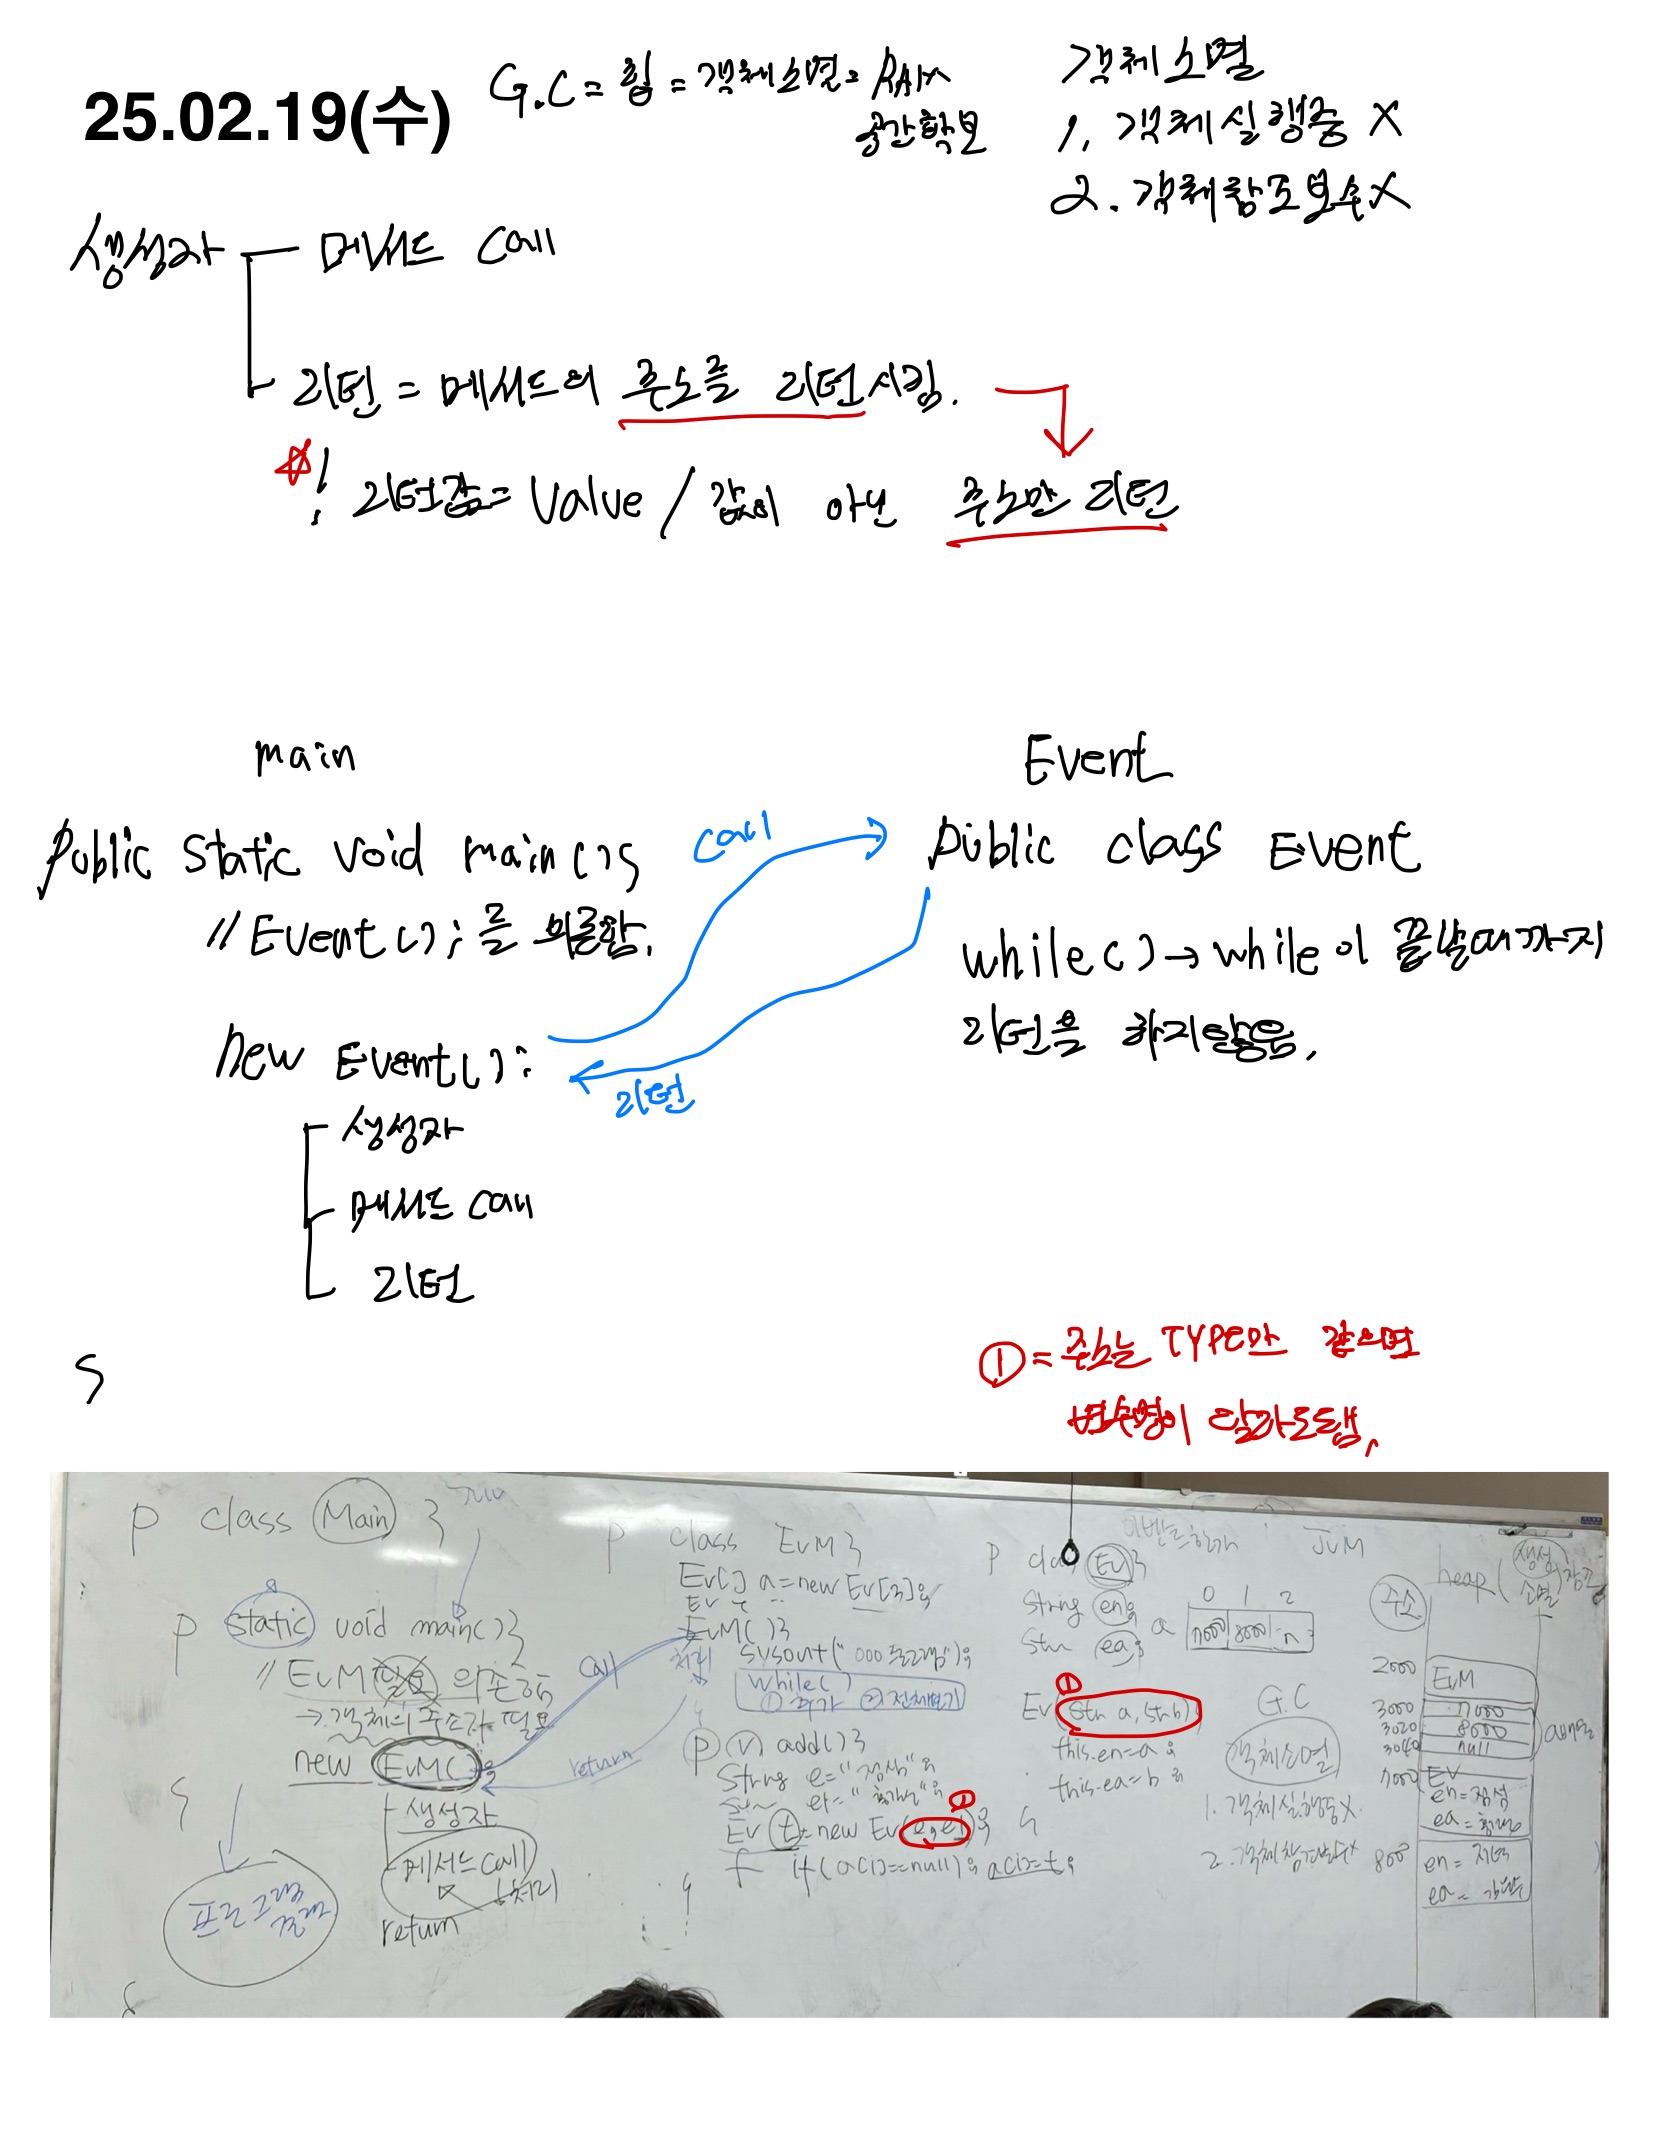 25.02.19(수)
G.C = 힙 = 객체소멸 = RAM
공간확보
객체소멸
1. 객체실행중 X
2. 객체참조변수 X
생성자 메서드 Call
리턴 = 메서드의 주소를 리턴시킴.
! 리턴값 = Value / 값이 아닌 주소만 리턴
main
Public Static Void main() {
// Event(); 를 의존함.
new Event();
생성자
메서드 Call
리턴
}
Call
리턴
Event
Public class Event
while() → while이 끝날때까지
리턴을 하지않음.
① = 주소는 TYPE만 같으면
변수명이 달라도됨.
p class Main {
p static void main() {
// EvM 필요 의존함
→ 객체의 주소가 필요
new EvM();
생성자
메서드 call
처리
return
프로그램
call
return
p class EvM {
Ev[] a = new Ev[3];
EvM() {
처리 sysout("000 프로그램");
while()
① 추가 ② 전체보기
p (v) add() {
String e = "점심";
Ev t = new Ev(e, e1);
f if(a[i]==null); a[i]=t;
p class Ev {
String en;
Str ea;
① Ev(Str a, Str b)
this.en=a;
this.ea=b;
JVM
0 1 2
a 7000 8000 n
G.C
객체소멸
1. 객체실행중 X
2. 객체참조변수 X
주소
heap (생성 소멸)
2000 EvM
3000 7000
3020 8000
3040 null
7000 Ev
en=점심
ea=
800 en=저녁
ea=